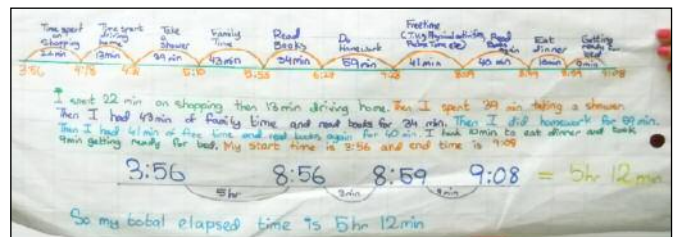 Time spent on Shopping Time spent driving home Take a Shower Family Time Read Books Do Homework Freetime (T.V, Physical activities, Read Books again Eat dinner Getting ready for bed
22min 13min 39 min 43min 34min 59min 41min 40 min 10min 9min
3:56 4:18 4:31 5:10 8:09 9:08
I spent 22 min on shopping then 13 min driving home. Then I spent 39 min taking a shower.
Then I had 43min of family time and read books for 34 min. Then I did homework for 59 min.
Then I had 41min of free time and read books again for 40 min. I took 10min to eat dinner and took
9min getting ready for bed. My start time is 3:56 and end time is 9:08
3:56 8:56 8:59 9:08 = 5hr 12min
5hr 3min 9min
So my total elapsed time is 5hr 12min